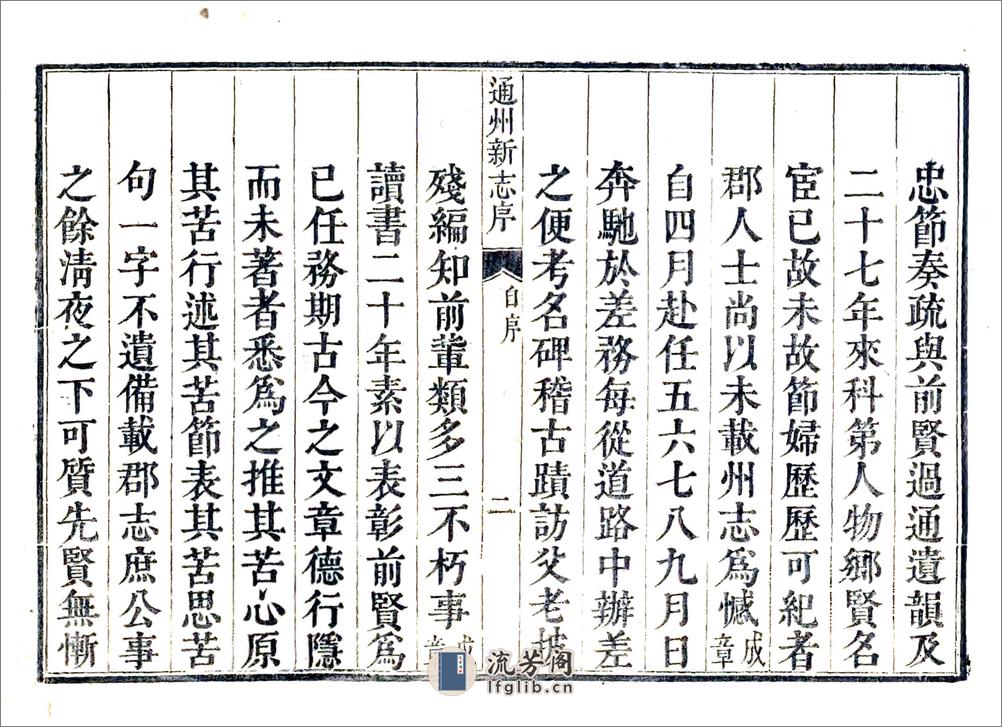 忠節奏疏與前賢過通遺韻及
二十七年來科第人物鄉賢名
宦已故未故節婦歷歷可紀者
郡人士尚以未載州志爲憾成章
自四月赴任五六七八九月日
奔馳於差務每從道路中辦差
之便考名碑稽古蹟訪父老披
通州新志序
自序
二
殘編知前輩類多三不朽事成章
讀書二十年素以表彰前賢爲
已任務期古今之文章德行隱
而未著者悉爲之推其苦心原
其苦行述其苦節表其苦思苦
句一字不遺備載郡志庶公事
之餘清夜之下可質先賢無慚
流芳閣
lfglib.cn